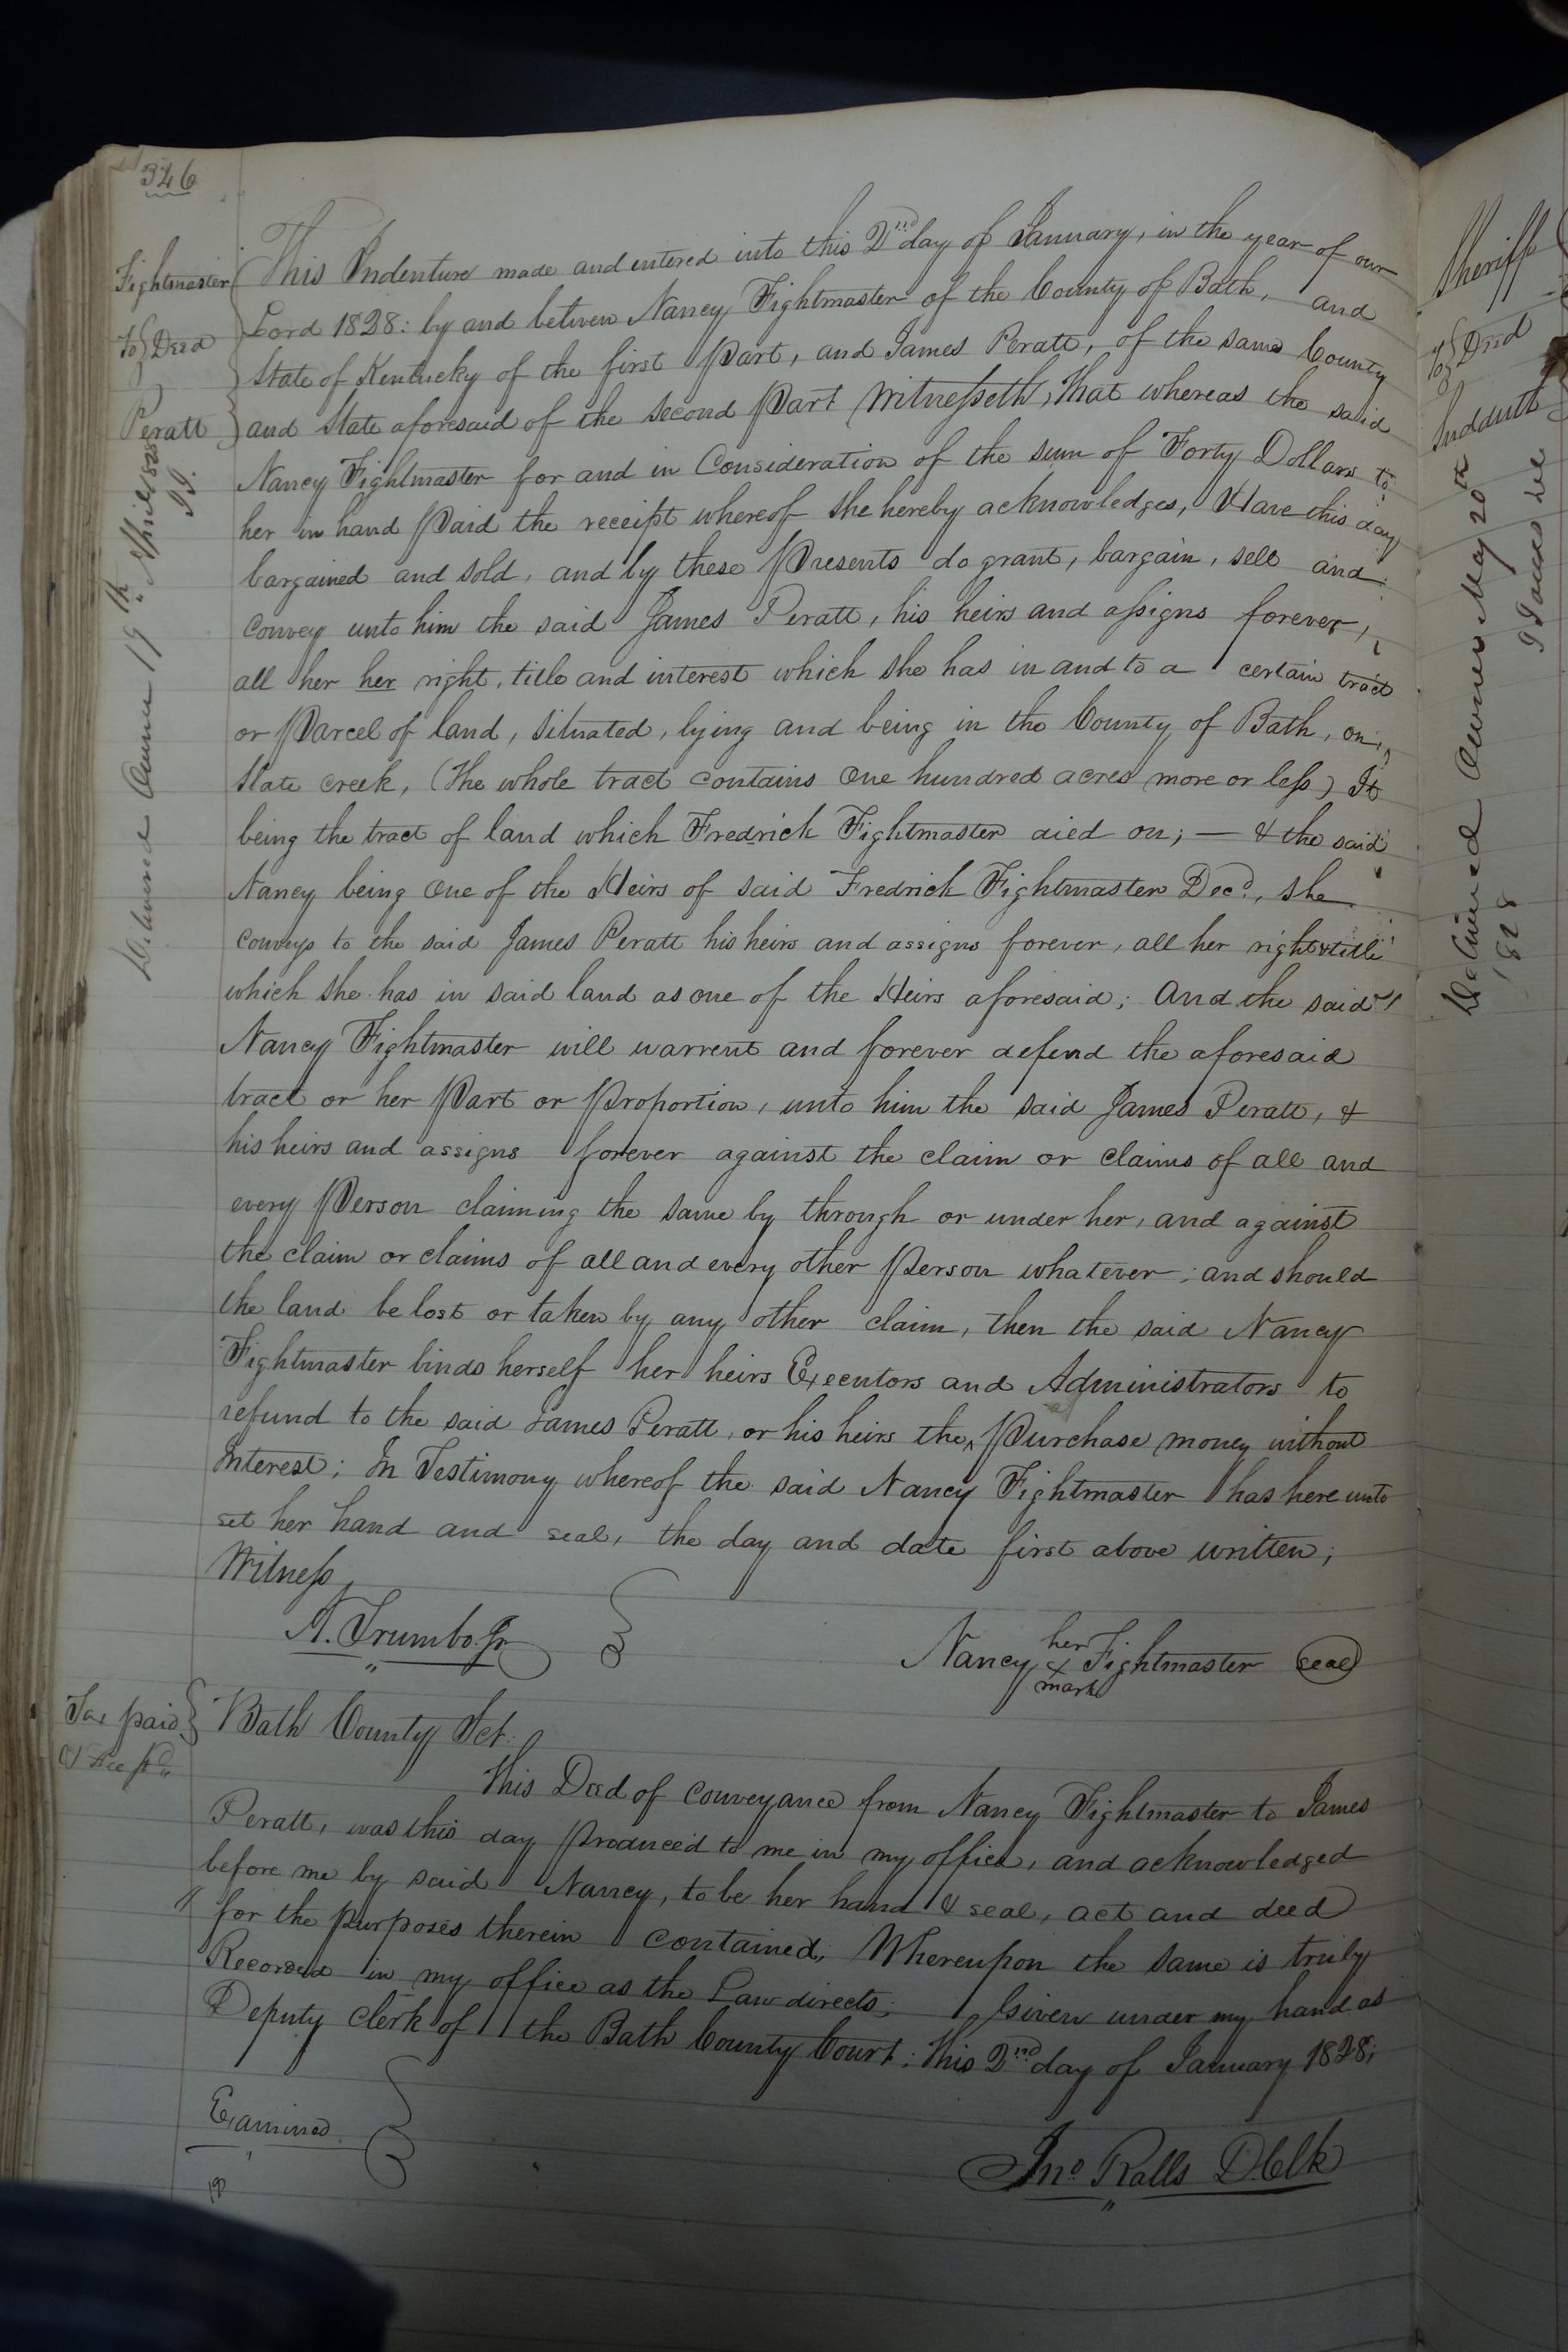 346
Fightmaster
To Deed
Peratt
Delivered Owner 19th April 1828
This Indenture made and entered into this 2nd day of January, in the year of our
Lord 1828: by and between Nancy Fightmaster of the County of Bath, and
State of Kentucky of the first Part, and James Peratt, of the same County
and State aforesaid of the second Part Witnesseth, That whereas the said
Nancy Fightmaster for and in Consideration of the sum of Forty Dollars to
her in hand Paid the receipt whereof she hereby acknowledges, Have this day
bargained and sold, and by these Presents do grant, bargain, sell and
convey unto him the said James Peratt, his heirs and assigns forever,
all her her right, title and interest which she has in and to a certain tract
or Parcel of land, situated, lying and being in the County of Bath, on
Slate creek, (The whole tract contains One hundred acres more or less) It
being the tract of land which Fredrick Fightmaster died on; — & the said
Nancy being One of the Heirs of said Fredrick Fightmaster Decd., she
conveys to the said James Peratt his heirs and assigns forever, all her right & title
which she has in said land as one of the Heirs aforesaid; And the said
Nancy Fightmaster will warrent and forever defend the aforesaid
tract or her Part or Proportion, unto him the said James Peratt, &
his heirs and assigns forever against the claim or claims of all and
every Person claiming the same by through or under her, and against
the claim or claims of all and every other Person whatever; and should
the land be lost or taken by any other claim, then the said Nancy
Fightmaster binds herself her heirs Executors and Administrators to
refund to the said James Peratt, or his heirs the Purchase money without
Interest; In Testimony whereof the said Nancy Fightmaster has here unto
set her hand and seal, the day and date first above written;
Witness
A. Trumbo Jr
her
Nancy x Fightmaster seal
mark
Tax paid
& Fee pd.
Bath County Sct.
This Deed of conveyance from Nancy Fightmaster to James
Peratt, was this day Produced to me in my office, and acknowledged
before me by said Nancy, to be her hand & seal, act and deed
for the Purposes therein contained, Whereupon the same is truly
Recorded in my office as the Law directs; Given under my hand as
Deputy Clerk of the Bath County Court; this 2nd day of January 1828;
Examined
Jno Ralls D.Clk
Sheriff
To Deed
Suddauth
Delivered Owner May 20th
1828